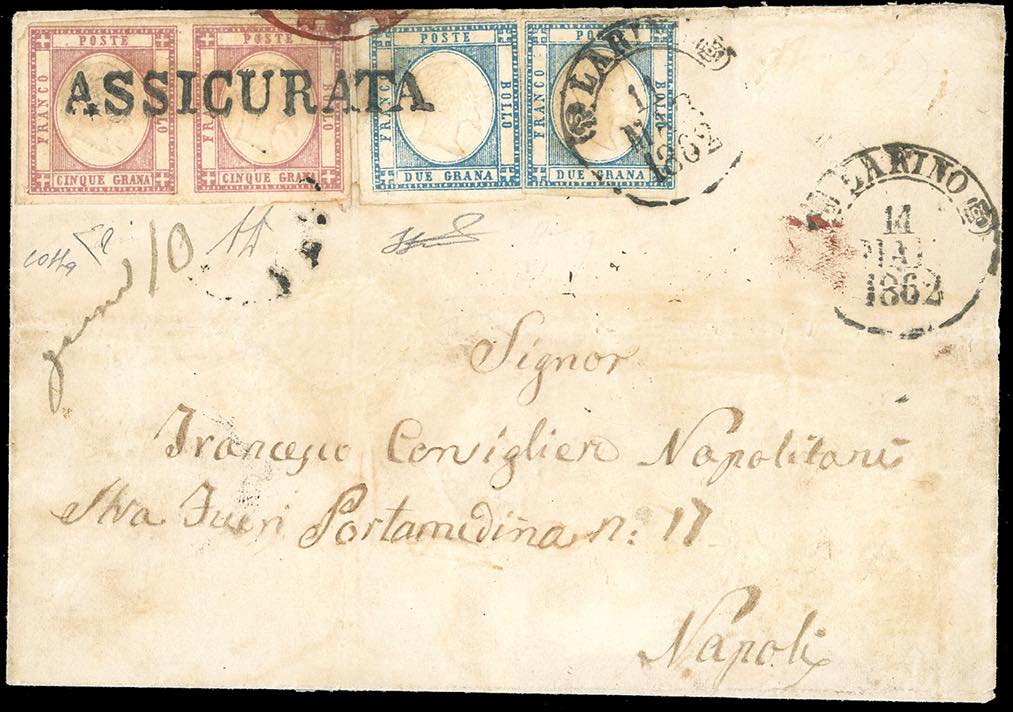 POSTE POSTE POSTE POSTE
FRANCO BOLLO FRANCO BOLLO FRANCO BOLLO FRANCO BOLLO
CINQUE GRANA CINQUE GRANA DUE GRANA DUE GRANA
ASSICURATA
LARI
1862
LARINO
11
MAG
1862
10
Signor
Francesco Consigliere Napolitani
Fuori Portamedina n: 17
Napoli